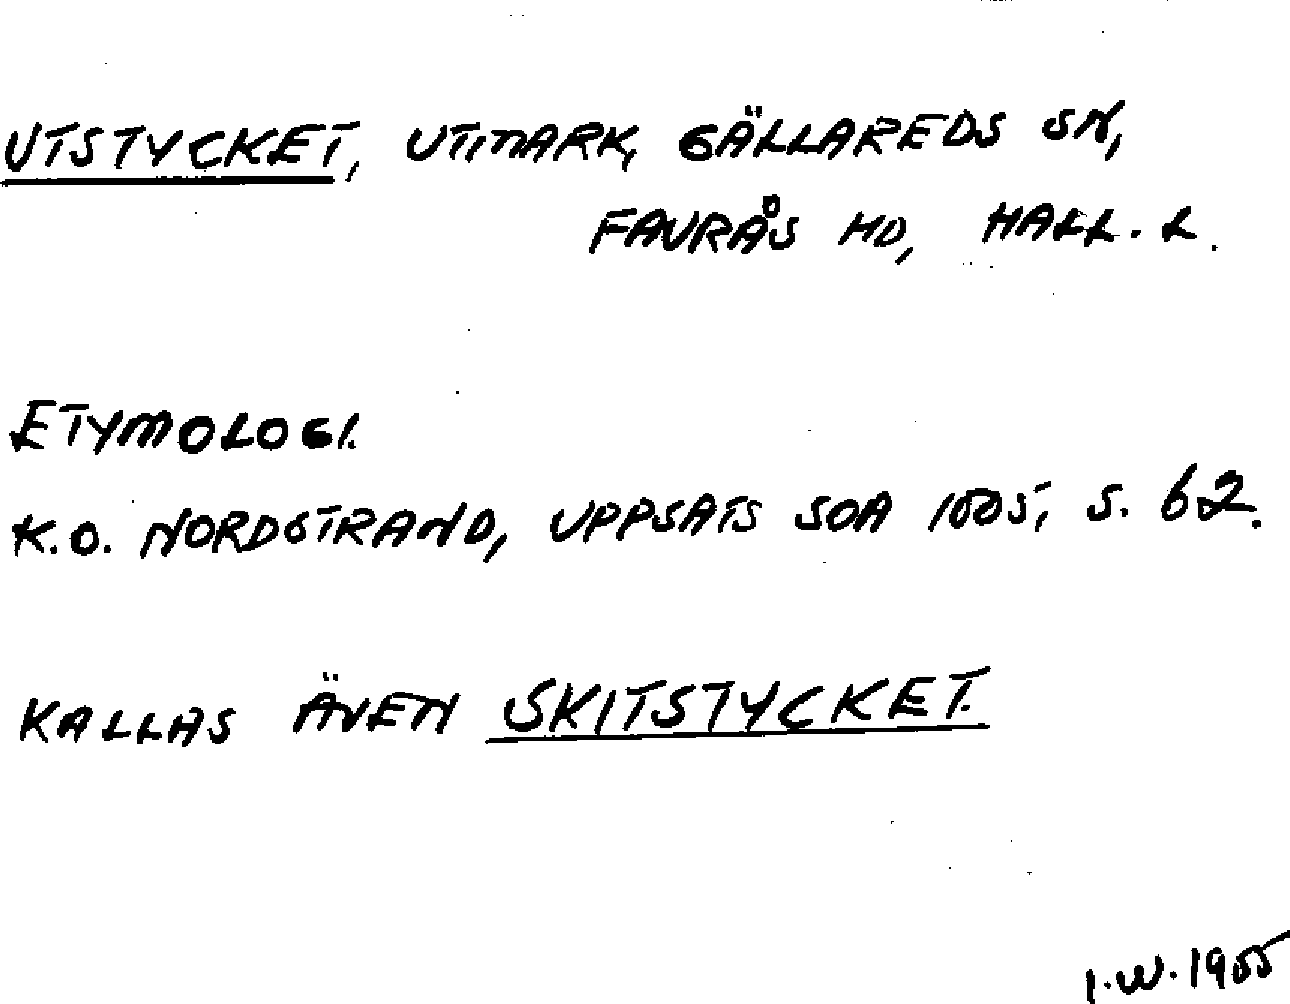 UTSTYCKET, UTMARK, GÄLLAREDS SN,
FAURÅS HD, HALL. L.
ETYMOLOGI.
K.O. NORDSTRAND, UPPSATS SOA 1505, S. 62.
KALLAS ÄVEN SKITSTYCKET.
I.W. 1955